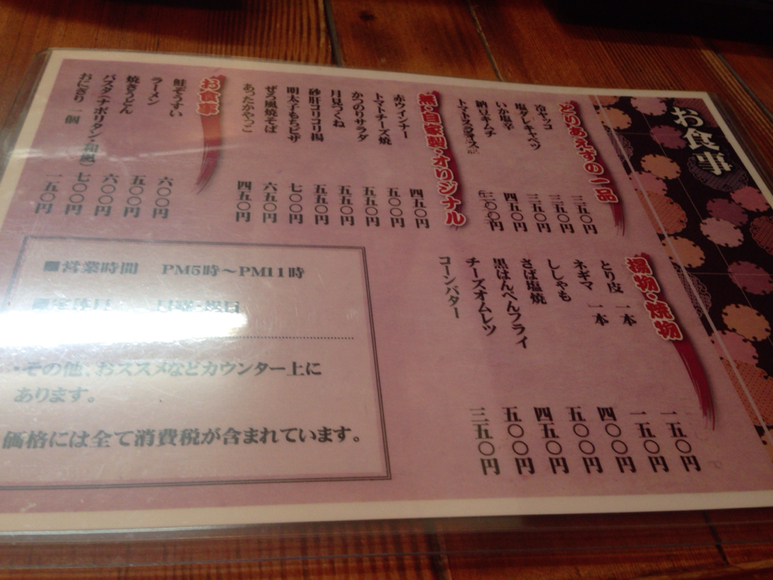 お食事
とりあえずの一品
冷ヤッコ 三五〇円
塩ダレキャベツ 三五〇円
いか塩辛 三五〇円
納豆キムチ 四五〇円
トマトスライス 三〇〇円
燻・自家製・オリジナル
赤ウインナー 四五〇円
トマトチーズ焼 五〇〇円
かつのりサラダ 五五〇円
月見つくね 五五〇円
砂肝コリコリ揚 五五〇円
明太子もちピザ 七〇〇円
ぜろ風焼そば 六五〇円
あったかやっこ 四五〇円
お食事
鮭ぞうすい 六〇〇円
ラーメン 五〇〇円
焼きうどん 六〇〇円
パスタ(ナポリタン・和風) 七〇〇円
おにぎり 一個 一五〇円
揚物・焼物
とり皮 一本 一五〇円
ネギマ 一本 一五〇円
ししゃも 四〇〇円
さば塩焼 五〇〇円
黒はんぺんフライ 四五〇円
チーズオムレツ 五〇〇円
コーンバター 三五〇円
■営業時間 PM5時〜PM11時
・その他、おススメなどカウンター上に
あります。
価格には全て消費税が含まれています。